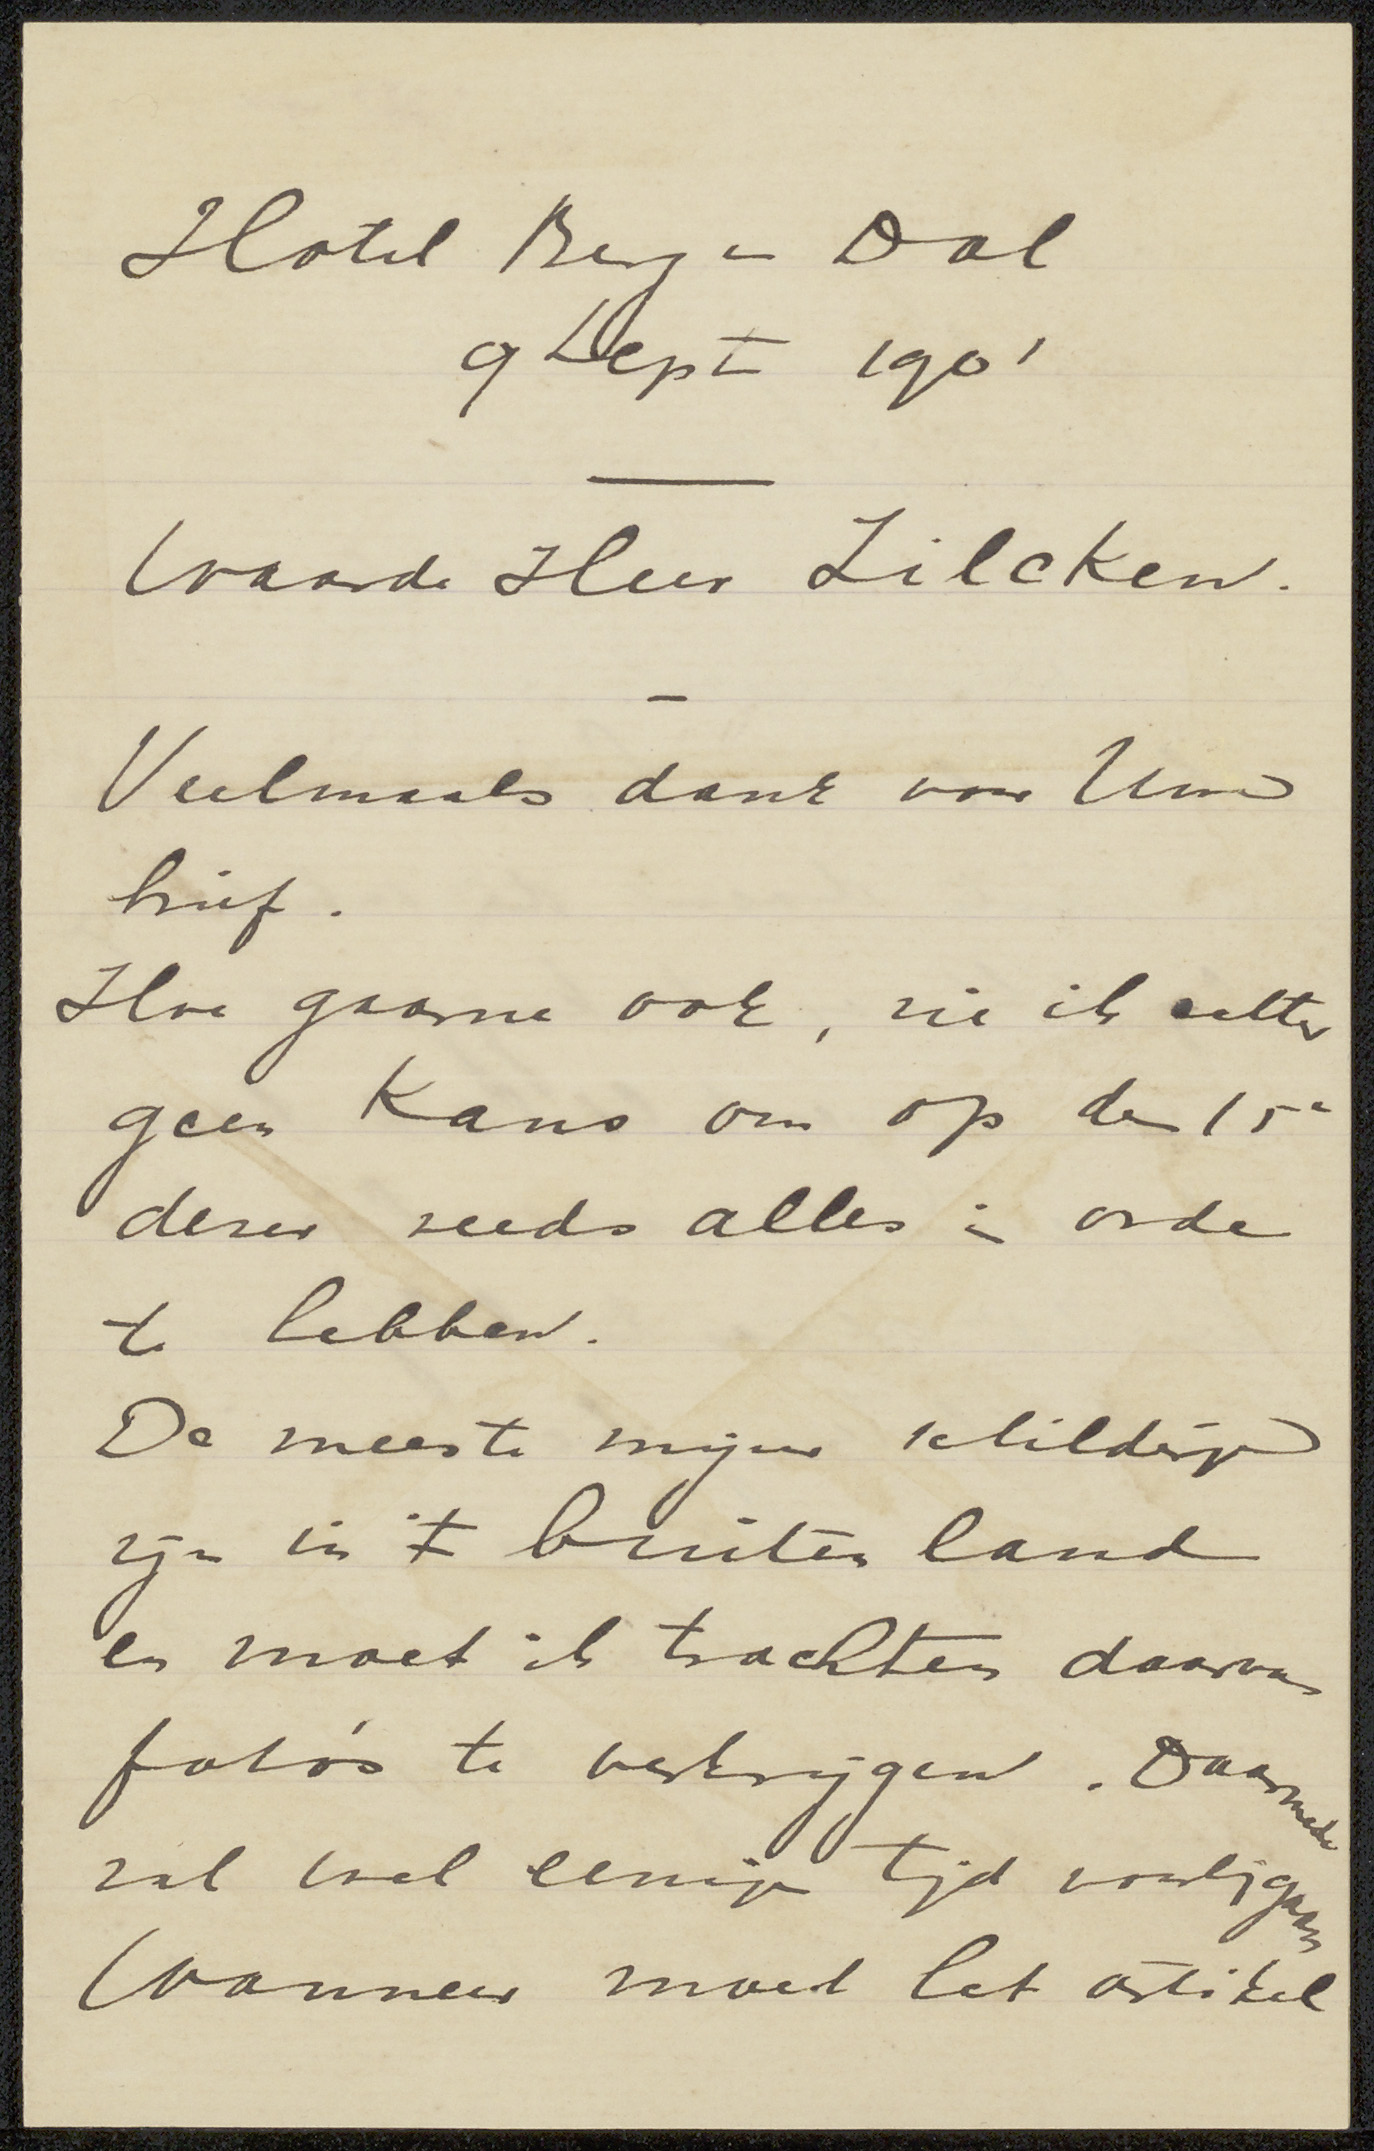 Hotel Berg en Dal
9 Sept 1901
Waarde Heer Zilcken.
Veelmaals dank voor Uwen
brief.
Hoe gaarne ook, zie ik echter
geen kans om op den 15e
dezer reeds alles in orde
te hebben.
De meeste mijner schilderijen
zijn in 't buitenland
en moet ik trachten daarvan
foto's te verkrijgen. Daarmede
zal wel eenige tijd voorbijgaan
Wanneer moet het artikel